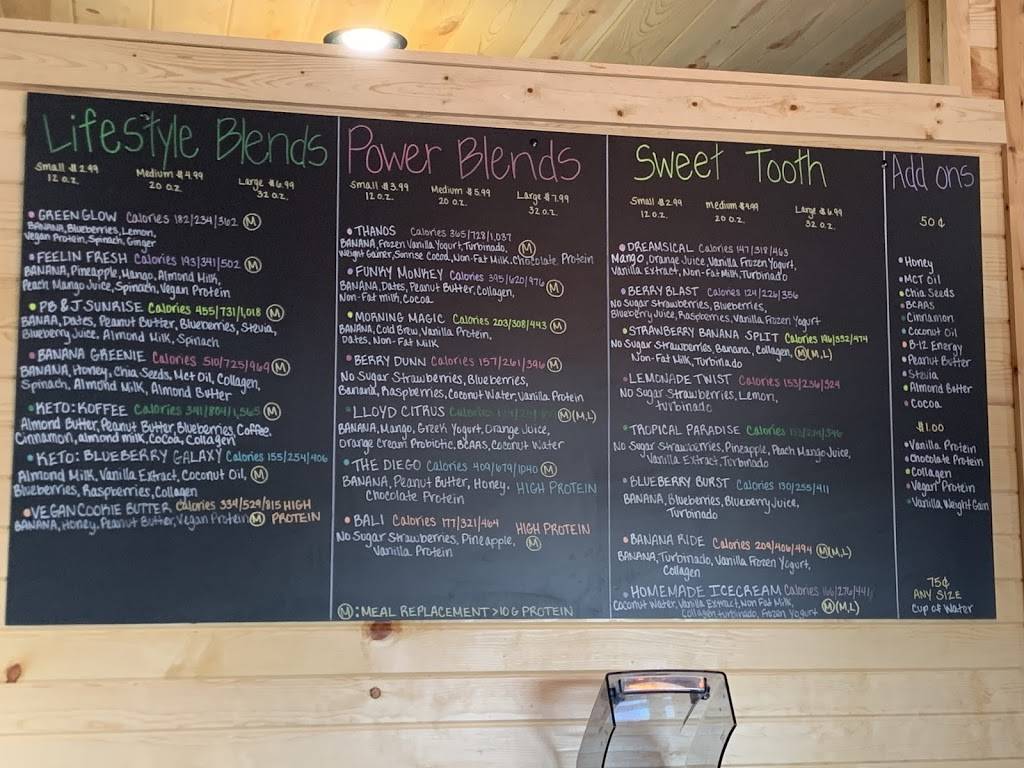 Lifestyle Blends
Small $2.99 Medium $4.99 Large $6.99
12 oz. 20 oz. 32 oz.
• GREEN GLOW Calories 182/234/362 Ⓜ
BANANA, Blueberries, Lemon,
Vegan Protein, Spinach, Ginger
• FEELIN FRESH Calories 193/341/502 Ⓜ
BANANA, Pineapple, Mango, Almond Milk,
Peach Mango Juice, Spinach, Vegan Protein
• PB & J SUNRISE Calories 455/731/1,018 Ⓜ
BANAA, Dates, Peanut Butter, Blueberries, Stevia,
Blueberry Juice, Almond Milk, Spinach
• BANANA GREENIE Calories 510/725/969 Ⓜ
BANANA, Honey, Chia Seeds, Mct Oil, Collagen,
Spinach, Almond Milk, Almond Butter
• KETO: KOFFEE Calories 341/804/1,565 Ⓜ
Almond Butter, Peanut Butter, Blueberries, Coffee,
Cinnamon, almond milk, Cocoa, Collagen
• KETO: BLUEBERRY GALAXY Calories 155/254/406
Almond Milk, Vanilla Extract, Coconut Oil, Ⓜ
Blueberries, Raspberries, Collagen
• VEGAN COOKIE BUTTER Calories 334/529/815 HIGH
BANANA, Honey, Peanut Butter, Vegan Protein Ⓜ PROTEIN
Power Blends
Small $3.99 Medium $5.99 Large $7.99
12 oz. 20 oz. 32 oz.
• THANOS Calories 365/728/1,037
BANANA, Frozen Vanilla Yogurt, Turbinado, Ⓜ
Weight Gainer, Sunrise Cocoa, Non-Fat Milk, Chocolate Protein
• FUNKY MONKEY Calories 395/620/976 Ⓜ
BANANA, Dates, Peanut Butter, Collagen,
Non-Fat milk, Cocoa
• MORNING MAGIC Calories 203/308/443 Ⓜ
BANANA, Cold Brew, Vanilla Protein,
Dates, Non-Fat Milk
• BERRY DUNN Calories 157/261/396 Ⓜ
No Sugar Strawberries, Blueberries,
Banana, Raspberries, Coconut Water, Vanilla Protein
• LLOYD CITRUS Calories Ⓜ(M,L)
BANANA, Mango, Greek Yogurt, Orange Juice,
Orange Cream Probiotic, BCAAS, Coconut Water
• THE DIEGO Calories 409/679/1040 Ⓜ
BANANA, Peanut Butter, Honey, HIGH PROTEIN
Chocolate Protein
• BALI Calories 177/321/464 HIGH PROTEIN
No Sugar Strawberries, Pineapple, Ⓜ
Vanilla Protein
Ⓜ: MEAL REPLACEMENT >10 G PROTEIN
Sweet Tooth
Small $2.99 Medium $4.99 Large $6.99
12 oz. 20 oz. 32 oz.
• DREAMSICAL Calories 147/318/463
Mango, Orange Juice, Vanilla Frozen Yogurt,
Vanilla Extract, Non-Fat Milk, Turbinado
• BERRY BLAST Calories 124/226/356
No Sugar Strawberries, Blueberries,
Blueberry Juice, Raspberries, Vanilla Frozen Yogurt
• STRAWBERRY BANANA SPLIT Calories 196/332/474
No Sugar Strawberries, Banana, Collagen, Ⓜ(M,L)
Non-Fat Milk, Turbinado
• LEMONADE TWIST Calories 153/236/324
No Sugar Strawberries, Lemon,
Turbinado
• TROPICAL PARADISE Calories
No Sugar Strawberries, Pineapple, Peach Mango Juice,
Vanilla Extract, Turbinado
• BLUEBERRY BURST Calories 130/255/411
BANANA, Blueberries, Blueberry Juice,
Turbinado
• BANANA RIDE Calories 209/406/494 Ⓜ(M,L)
BANANA, Turbinado, Vanilla Frozen Yogurt,
Collagen
• HOMEMADE ICECREAM Calories 166/276/441
Coconut Water, Vanilla Extract, Non Fat Milk, Ⓜ(M,L)
Collagen, turbinado, Frozen Yogurt
Add ons
50¢
• Honey
• MCT Oil
• Chia Seeds
• BCAAS
• Cinnamon
• Coconut Oil
• B-12 Energy
• Peanut Butter
• Stevia
• Almond Butter
• Cocoa
$1.00
• Vanilla Protein
• Chocolate Protein
• Collagen
• Vegan Protein
• Vanilla Weight Gain
75¢
ANY SIZE
Cup of Water